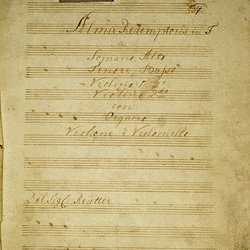 Alma Redemptoris in F
a
Soprano Alto
Tenore, Basso
Violino 1mo
Violino 2do
con
Organo
Violone è Violoncello
Del Sig: Reutter